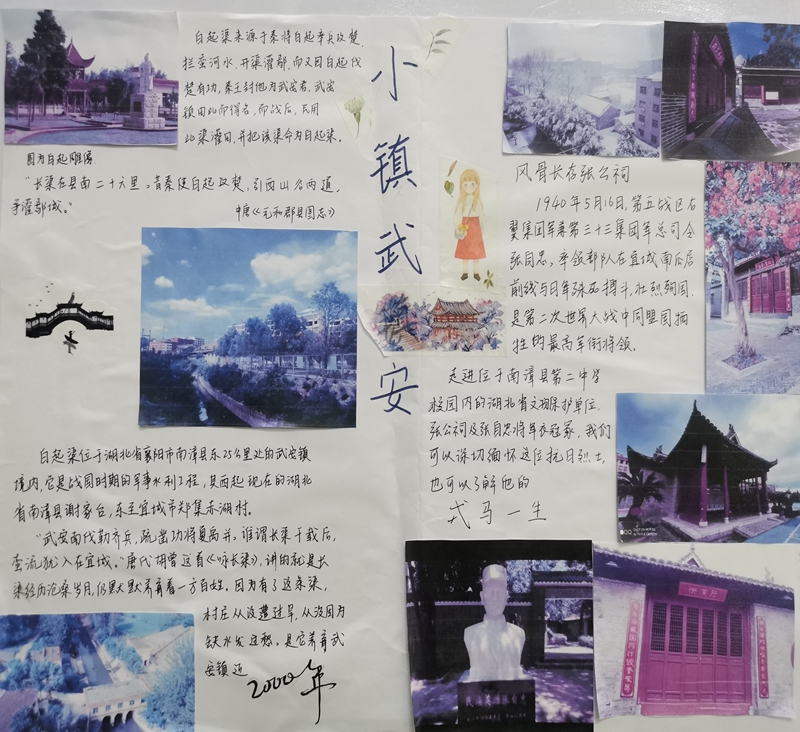 小镇武安
白起渠来源于秦将白起率兵攻楚,
拦蛮河水,开渠灌鄢,而又因白起伐
楚有功,秦王封他为武安君,武安
镇由此而得名,而战后,民用
此渠灌田,并把该渠命为白起渠。
图为白起雕像
“长渠在县南二十六里。昔秦使白起攻楚,引西山谷两道,
争灌鄢城。”
中唐《元和郡县图志》
白起渠位于湖北省襄阳市南漳县东25公里处的武安镇
境内,它是战国时期的军事水利工程,其西起现在的湖北
省南漳县谢家台,东至宜城市郑集赤湖村。
“武安南伐勒秦兵,疏凿功将夏禹并。谁谓长渠千载后,
蛮流犹入在宜城。”唐代胡曾这首《咏长渠》,讲的就是长
渠经历沧桑岁月,仍默默养育着一方百姓。因为有了这条渠,
村庄从没遭过旱,从没因为
缺水发过愁。是它养育武
安镇近
2000年
风骨长存张公祠
1940年5月16日,第五战区右
翼集团军兼第三十三集团军总司令
张自忠,率领部队在宜城南瓜店
前线与日军殊死搏斗,壮烈殉国,
是第二次世界大战中同盟国牺
牲的最高军衔将领。
走进位于南漳县第二中学
校园内的湖北省文物保护单位,
张公祠及张自忠将军衣冠冢,我们
可以深切缅怀这位抗日烈士,
也可以了解他的
戎马一生